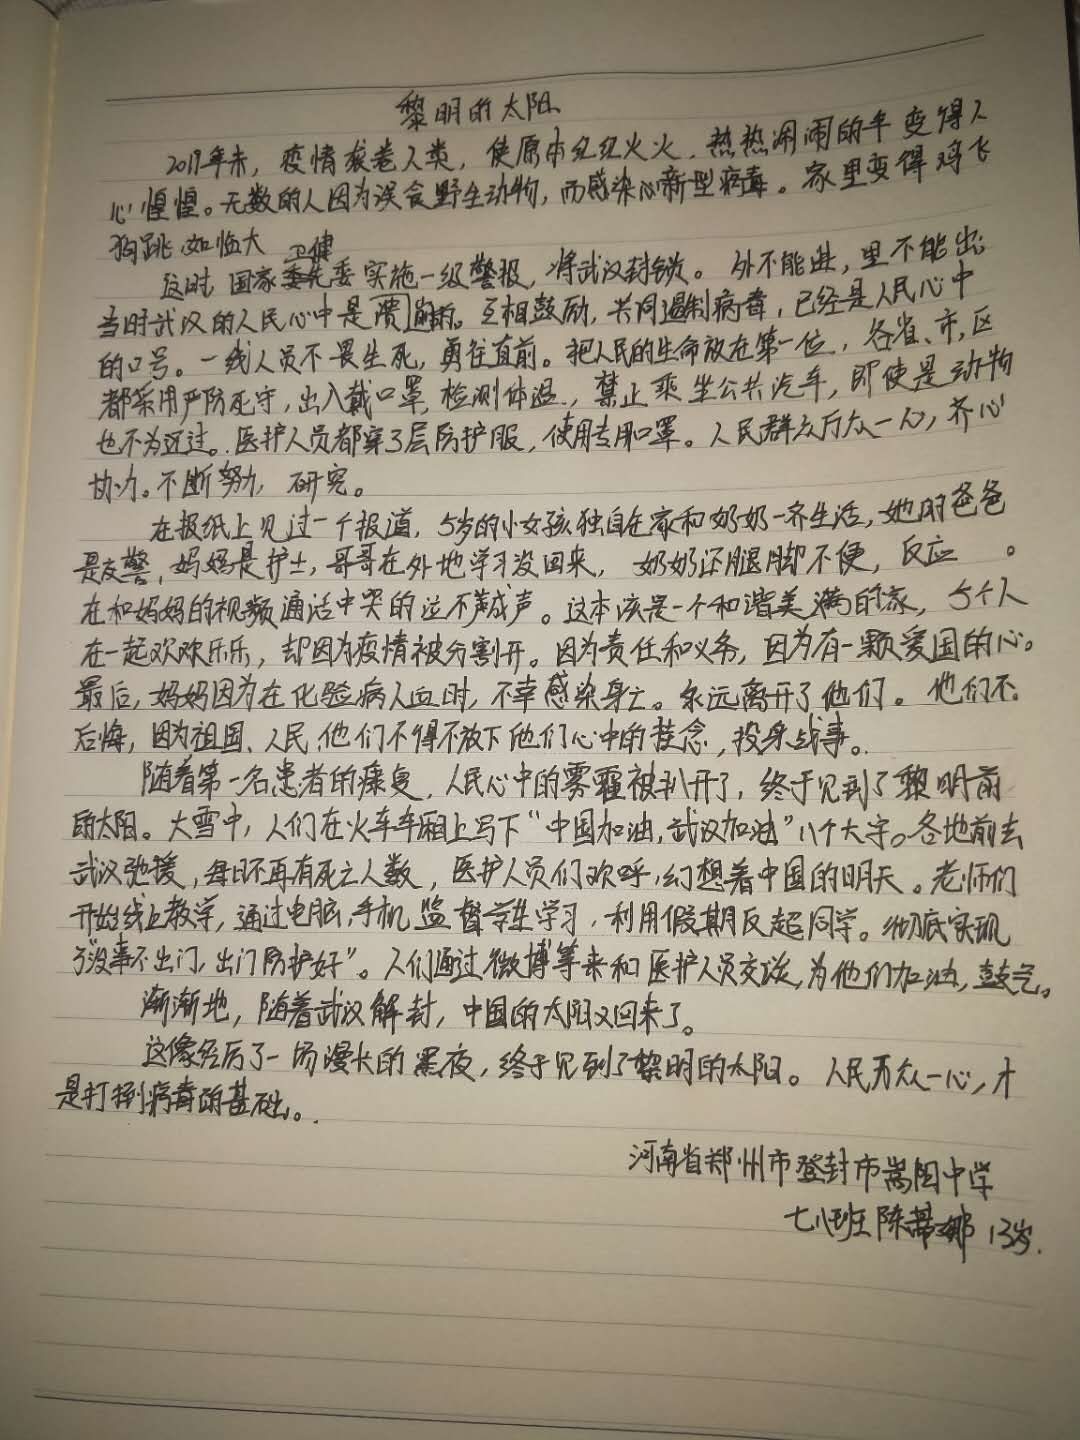 黎明的太阳
2019年末，疫情袭卷人类，使原本红红火火，热热闹闹的年变得人
心惶惶。无数的人因为误食野生动物，而感染心新型病毒。家里变得鸡飞
狗跳，如临大
这时，国家卫健委实施一级警报，将武汉封锁。外不能进，里不能出，
当时武汉的人民心中是崩溃的。互相鼓励，共同遏制病毒，已经是人民心中
的口号。一线人员不畏生死，勇往直前。把人民的生命放在第一位，各省、市，区
都采用严防死守，出入戴口罩，检测体温，禁止乘坐公共汽车，即使是动物
也不为过。医护人员都穿了层防护服，使用专用口罩。人民群众万众一心，齐心
协力。不断努力，研究。
在报纸上见过一个报道，5岁的小女孩独自在家和奶奶一齐生活，她的爸爸
是交警，妈妈是护士，哥哥在外地学习没回来，奶奶还腿脚不便，反应 。
在和妈妈的视频通话中哭的泣不成声。这本该是一个和谐美满的家，5个人
在一起欢欢乐乐，却因为疫情被分割开。因为责任和义务，因为有一颗爱国的心。
最后，妈妈因为在化验病人血时，不幸感染身亡。永远离开了他们。他们不
后悔，因为祖国、人民，他们不得不放下他们心中的挂念，投身战事。
随着第一名患者的康复，人民心中的雾霾被扒开了，终于见到了黎明前
的太阳。大雪中，人们在火车车厢上写下“中国加油，武汉加油”八个大字。各地前去
武汉驰援，每日不再有死亡人数，医护人员们欢呼，幻想着中国的明天。老师们
开始线上教学，通过电脑，手机监督学生学习，利用假期反超同学。彻底实现
了“没事不出门，出门防护好”。人们通过微博等来和医护人员交谈，为他们加油，鼓气。
渐渐地，随着武汉解封，中国的太阳又回来了。
这像经历了一场漫长的黑夜，终于见到了黎明的太阳。人民万众一心，才
是打倒病毒的基础。
河南省郑州市登封市嵩阳中学
七八班陈蒂娜 13岁.